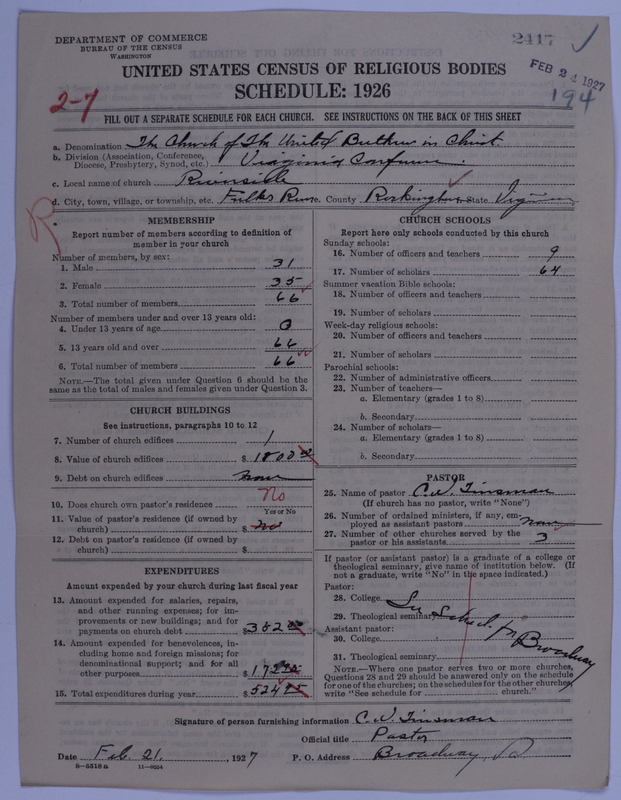 DEPARTMENT OF COMMERCE
BUREAU OF THE CENSUS
WASHINGTON
2417
FEB 24 1927
194
2-7
UNITED STATES CENSUS OF RELIGIOUS BODIES
SCHEDULE: 1926
FILL OUT A SEPARATE SCHEDULE FOR EACH CHURCH. SEE INSTRUCTIONS ON THE BACK OF THIS SHEET
a. Denomination The Church of The United Brethren in Christ.
b. Division (Association, Conference, Diocese, Presbytery, Synod, etc.) Virginia Conference.
c. Local name of church Riverside
d. City, town, village, or township, etc. Fulks Run. County Rockingham State Virginia
R
MEMBERSHIP
Report number of members according to definition of
member in your church
Number of members, by sex:
1. Male 31
2. Female 35
3. Total number of members 66
Number of members under and over 13 years old:
4. Under 13 years of age 0
5. 13 years old and over 66
6. Total number of members 66
NOTE.—The total given under Question 6 should be the
same as the total of males and females given under Question 3.
CHURCH BUILDINGS
See instructions, paragraphs 10 to 12
7. Number of church edifices 1
8. Value of church edifices $ 1800 00
9. Debt on church edifices none
10. Does church own pastor's residence No
Yes or No
11. Value of pastor's residence (if owned by
church) $ no
12. Debt on pastor's residence (if owned by
church) $
EXPENDITURES
Amount expended by your church during last fiscal year
13. Amount expended for salaries, repairs,
and other running expenses; for im-
provements or new buildings; and for
payments on church debt $ 352 00
14. Amount expended for benevolences, in-
cluding home and foreign missions; for
denominational support; and for all
other purposes $ 172 95
15. Total expenditures during year $ 524 95
CHURCH SCHOOLS
Report here only schools conducted by this church
Sunday schools:
16. Number of officers and teachers 9
17. Number of scholars 64
Summer vacation Bible schools:
18. Number of officers and teachers
19. Number of scholars
Week-day religious schools:
20. Number of officers and teachers
21. Number of scholars
Parochial schools:
22. Number of administrative officers
23. Number of teachers—
a. Elementary (grades 1 to 8)
b. Secondary
24. Number of scholars—
a. Elementary (grades 1 to 8)
b. Secondary
PASTOR
25. Name of pastor C. W. Tinsman
(If church has no pastor, write "None")
26. Number of ordained ministers, if any, em-
ployed as assistant pastors none
27. Number of other churches served by the
pastor or his assistants 3
If pastor (or assistant pastor) is a graduate of a college or
theological seminary, give name of institution below. (If
not a graduate, write "No" in the space indicated.)
Pastor:
28. College
29. Theological seminary
See Sched for Broadway
Assistant pastor:
30. College
31. Theological seminary
NOTE.—Where one pastor serves two or more churches,
Questions 28 and 29 should be answered only on the schedule
for one of the churches; on the schedules for the other churches,
write "See schedule for church."
Signature of person furnishing information C. W. Tinsman
Official title Pastor
Date Feb. 21, 1927 P. O. Address Broadway, Va
8—5518a 11—9554